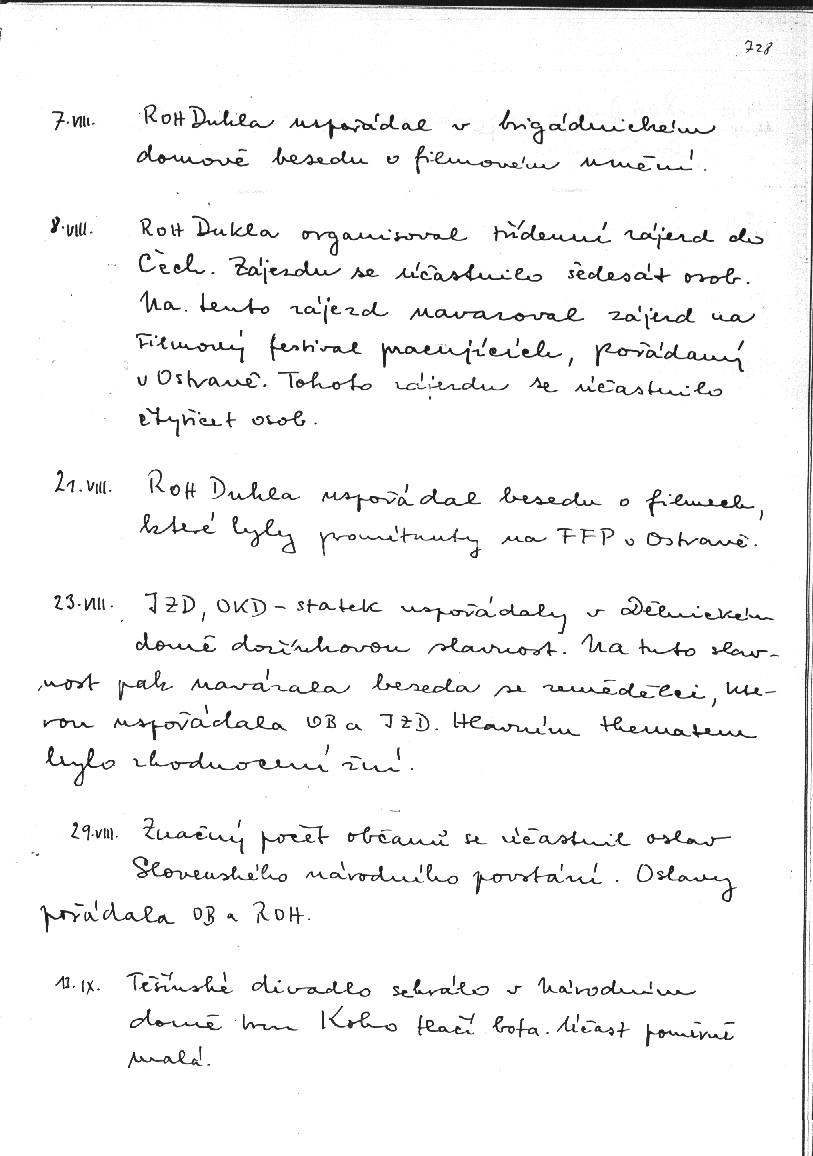 728
7.VIII. ROH Dukla uspořádal v brigádnickém
domově besedu o filmovém umění.
8.VIII. ROH Dukla organisoval třídenní zájezd do
Čech. Zájezdu se účastnilo šedesát osob.
Na tento zájezd navazoval zájezd na
Filmový festival pracujících, pořádaný
v Ostravě. Tohoto zájezdu se účastnilo
čtyřicet osob.
21.VIII. ROH Dukla uspořádal besedu o filmech,
které byly promítnuty na FFP v Ostravě.
23.VIII. JZD, OKD - statek uspořádaly v Dělnickém
domě dožínkovou slavnost. Na tuto slav-
nost pak navázala beseda se zemědělci, kte-
rou uspořádala OB a JZD. Hlavním thematem
bylo zhodnocení žní.
29.VIII. Značný počet občanů se účastnil oslav
Slovenského národního povstání. Oslavy
pořádala OB a ROH.
IX. Těšínské divadlo sehrálo v Národním
domě hru Koho tlačí bota. Účast poměrně
malá.